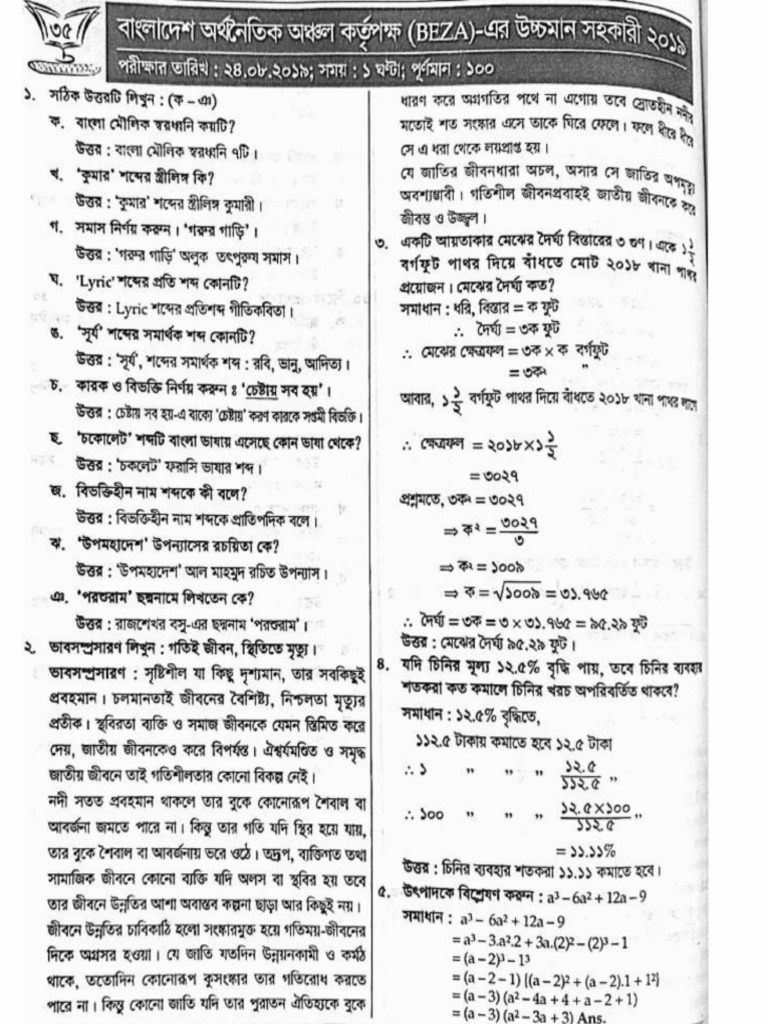 ৩৫
বাংলাদেশ অর্থনৈতিক অঞ্চল কর্তৃপক্ষ (BEZA)-এর উচ্চমান সহকারী ২০১৯
পরীক্ষার তারিখ : ২৪.০৮.২০১৯; সময় : ১ ঘণ্টা; পূর্ণমান : ১০০
১. সঠিক উত্তরটি লিখুন : (ক – ঞ)
ক. বাংলা মৌলিক স্বরধ্বনি কয়টি?
উত্তর : বাংলা মৌলিক স্বরধ্বনি ৭টি।
খ. ‘কুমার’ শব্দের স্ত্রীলিঙ্গ কি?
উত্তর : ‘কুমার’ শব্দের স্ত্রীলিঙ্গ কুমারী।
গ. সমাস নির্ণয় করুন। ‘গরুর গাড়ি’।
উত্তর : ‘গরুর গাড়ি’ অলুক তৎপুরুষ সমাস।
ঘ. 'Lyric' শব্দের প্রতি শব্দ কোনটি?
উত্তর : Lyric শব্দের প্রতিশব্দ গীতিকবিতা।
ঙ. ‘সূর্য’ শব্দের সমার্থক শব্দ কোনটি?
উত্তর : ‘সূর্য’, শব্দের সমার্থক শব্দ : রবি, ভানু, আদিত্য।
চ. কারক ও বিভক্তি নির্ণয় করুন ঃ ‘চেষ্টায় সব হয়’।
উত্তর : চেষ্টায় সব হয়-এ বাক্যে ‘চেষ্টায়’ করণ কারকে সপ্তমী বিভক্তি।
ছ. ‘চকোলেট’ শব্দটি বাংলা ভাষায় এসেছে কোন ভাষা থেকে?
উত্তর : ‘চকলেট’ ফরাসি ভাষার শব্দ।
জ. বিভক্তিহীন নাম শব্দকে কী বলে?
উত্তর : বিভক্তিহীন নাম শব্দকে প্রাতিপদিক বলে।
ঝ. ‘উপমহাদেশ’ উপন্যাসের রচয়িতা কে?
উত্তর : ‘উপমহাদেশ’ আল মাহমুদ রচিত উপন্যাস।
ঞ. ‘পরশুরাম’ ছদ্মনামে লিখতেন কে?
উত্তর : রাজশেখর বসু-এর ছদ্মনাম ‘পরশুরাম’।
২. ভাবসম্প্রসারণ লিখুন : গতিই জীবন, স্থিতিতে মৃত্যু।
ভাবসম্প্রসারণ : সৃষ্টিশীল যা কিছু দৃশ্যমান, তার সবকিছুই
প্রবহমান। চলমানতাই জীবনের বৈশিষ্ট্য, নিশ্চলতা মৃত্যুর
প্রতীক। স্থবিরতা ব্যক্তি ও সমাজ জীবনকে যেমন স্তিমিত করে
দেয়, জাতীয় জীবনকেও করে বিপর্যস্ত। ঐশ্বর্যমণ্ডিত ও সমৃদ্ধ
জাতীয় জীবনে তাই গতিশীলতার কোনো বিকল্প নেই।
নদী সতত প্রবহমান থাকলে তার বুকে কোনোরূপ শৈবাল বা
আবর্জনা জমতে পারে না। কিন্তু তার গতি যদি স্থির হয়ে যায়,
তার বুকে শৈবাল বা আবর্জনায় ভরে ওঠে। তদ্রূপ, ব্যক্তিগত তথা
সামাজিক জীবনে কোনো ব্যক্তি যদি অলস বা স্থবির হয় তবে
তার জীবনে উন্নতির আশা অবাস্তব কল্পনা ছাড়া আর কিছুই নয়।
জীবনে উন্নতির চাবিকাঠি হলো সংস্কারমুক্ত হয়ে গতিময়-জীবনের
দিকে অগ্রসর হওয়া। যে জাতি যতদিন উন্নয়নকামী ও কর্মঠ
থাকে, ততোদিন কোনোরূপ কুসংস্কার তার গতিরোধ করতে
পারে না। কিন্তু কোনো জাতি যদি তার পুরাতন ঐতিহ্যকে বুকে
ধারণ করে অগ্রগতির পথে না এগোয় তবে স্রোতহীন নদীর
মতোই শত সংস্কার এসে তাকে ঘিরে ফেলে। ফলে ধীরে ধীরে
সে এ ধরা থেকে লয়প্রাপ্ত হয়।
যে জাতির জীবনধারা অচল, অসার সে জাতির অপমৃত্যু
অবশ্যম্ভাবী। গতিশীল জীবনপ্রবাহই জাতীয় জীবনকে করে
জীবন্ত ও উজ্জ্বল।
৩. একটি আয়তাকার মেঝের দৈর্ঘ্য বিস্তারের ৩ গুণ। একে ১ ১/২
বর্গফুট পাথর দিয়ে বাঁধতে মোট ২০১৮ খানা পাথর
প্রয়োজন। মেঝের দৈর্ঘ্য কত?
সমাধান : ধরি, বিস্তার = ক ফুট
∴ দৈর্ঘ্য = ৩ক ফুট
∴ মেঝের ক্ষেত্রফল = ৩ক × ক বর্গফুট
= ৩ক² "
আবার, ১ ১/২ বর্গফুট পাথর দিয়ে বাঁধতে ২০১৮ খানা পাথর লাগে
∴ ক্ষেত্রফল = ২০১৮×১ ১/২
= ৩০২৭
প্রশ্নমতে, ৩ক² = ৩০২৭
⇒ ক² = ৩০২৭/৩
⇒ ক² = ১০০৯
⇒ ক = √১০০৯ = ৩১.৭৬৫
∴ দৈর্ঘ্য = ৩ক = ৩ × ৩১.৭৬৫ = ৯৫.২৯ ফুট
উত্তর : মেঝের দৈর্ঘ্য ৯৫.২৯ ফুট।
৪. যদি চিনির মূল্য ১২.৫% বৃদ্ধি পায়, তবে চিনির ব্যবহার
শতকরা কত কমালে চিনির খরচ অপরিবর্তিত থাকবে?
সমাধান : ১২.৫% বৃদ্ধিতে,
১১২.৫ টাকায় কমাতে হবে ১২.৫ টাকা
∴ ১ " " " ১২.৫/১১২.৫ "
∴ ১০০ " " " ১২.৫×১০০/১১২.৫ "
= ১১.১১%
উত্তর : চিনির ব্যবহার শতকরা ১১.১১ কমাতে হবে।
৫. উৎপাদকে বিশ্লেষণ করুন : a³ – 6a² + 12a – 9
সমাধান : a³ – 6a² + 12a – 9
= a³ – 3.a².2 + 3a.(2)² – (2)³ – 1
= (a – 2)³ – 1³
= (a – 2 – 1) {(a – 2)² + (a – 2).1 + 1²}
= (a – 3) (a² – 4a + 4 + a – 2 + 1)
= (a – 3) (a² – 3a + 3) Ans.